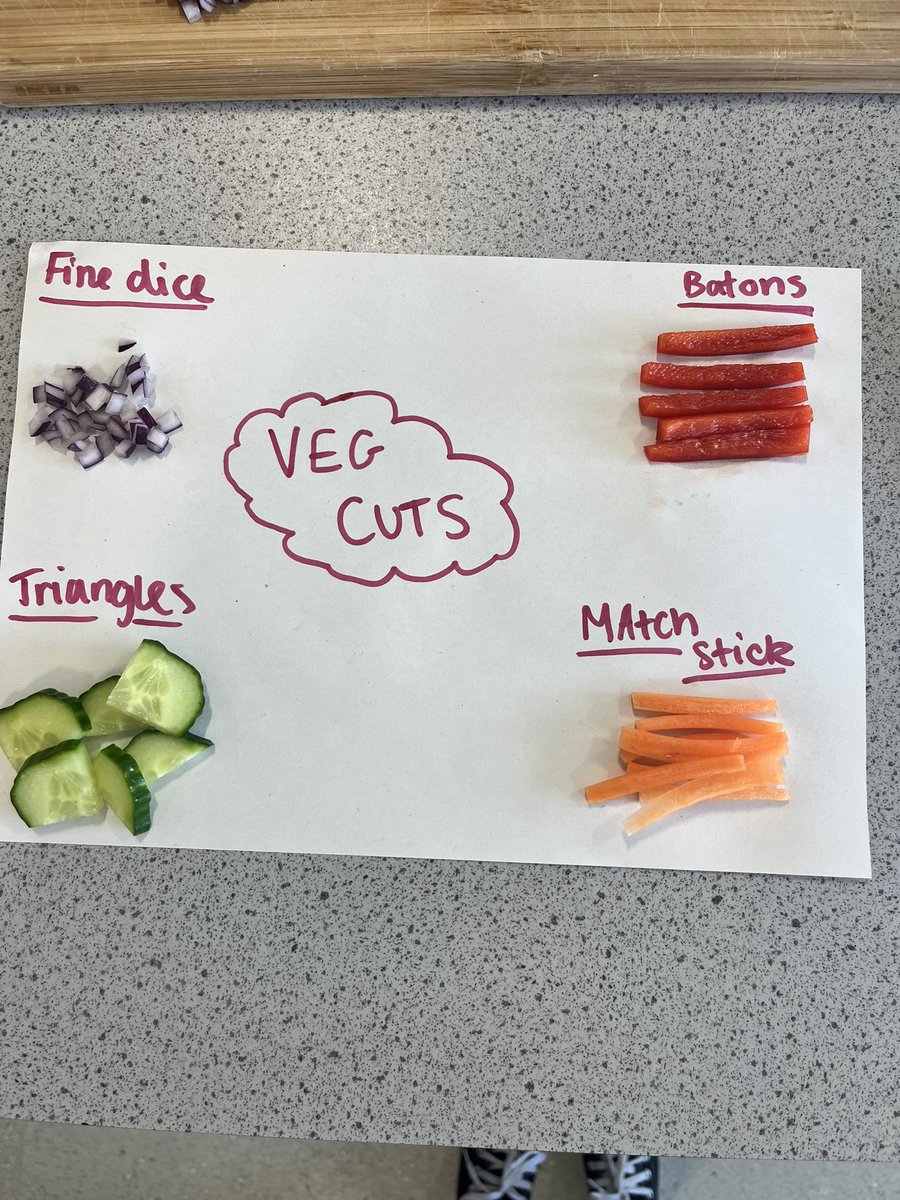 Fine dice
Batons
VEG
CUTS
Triangles
MAtch
stick